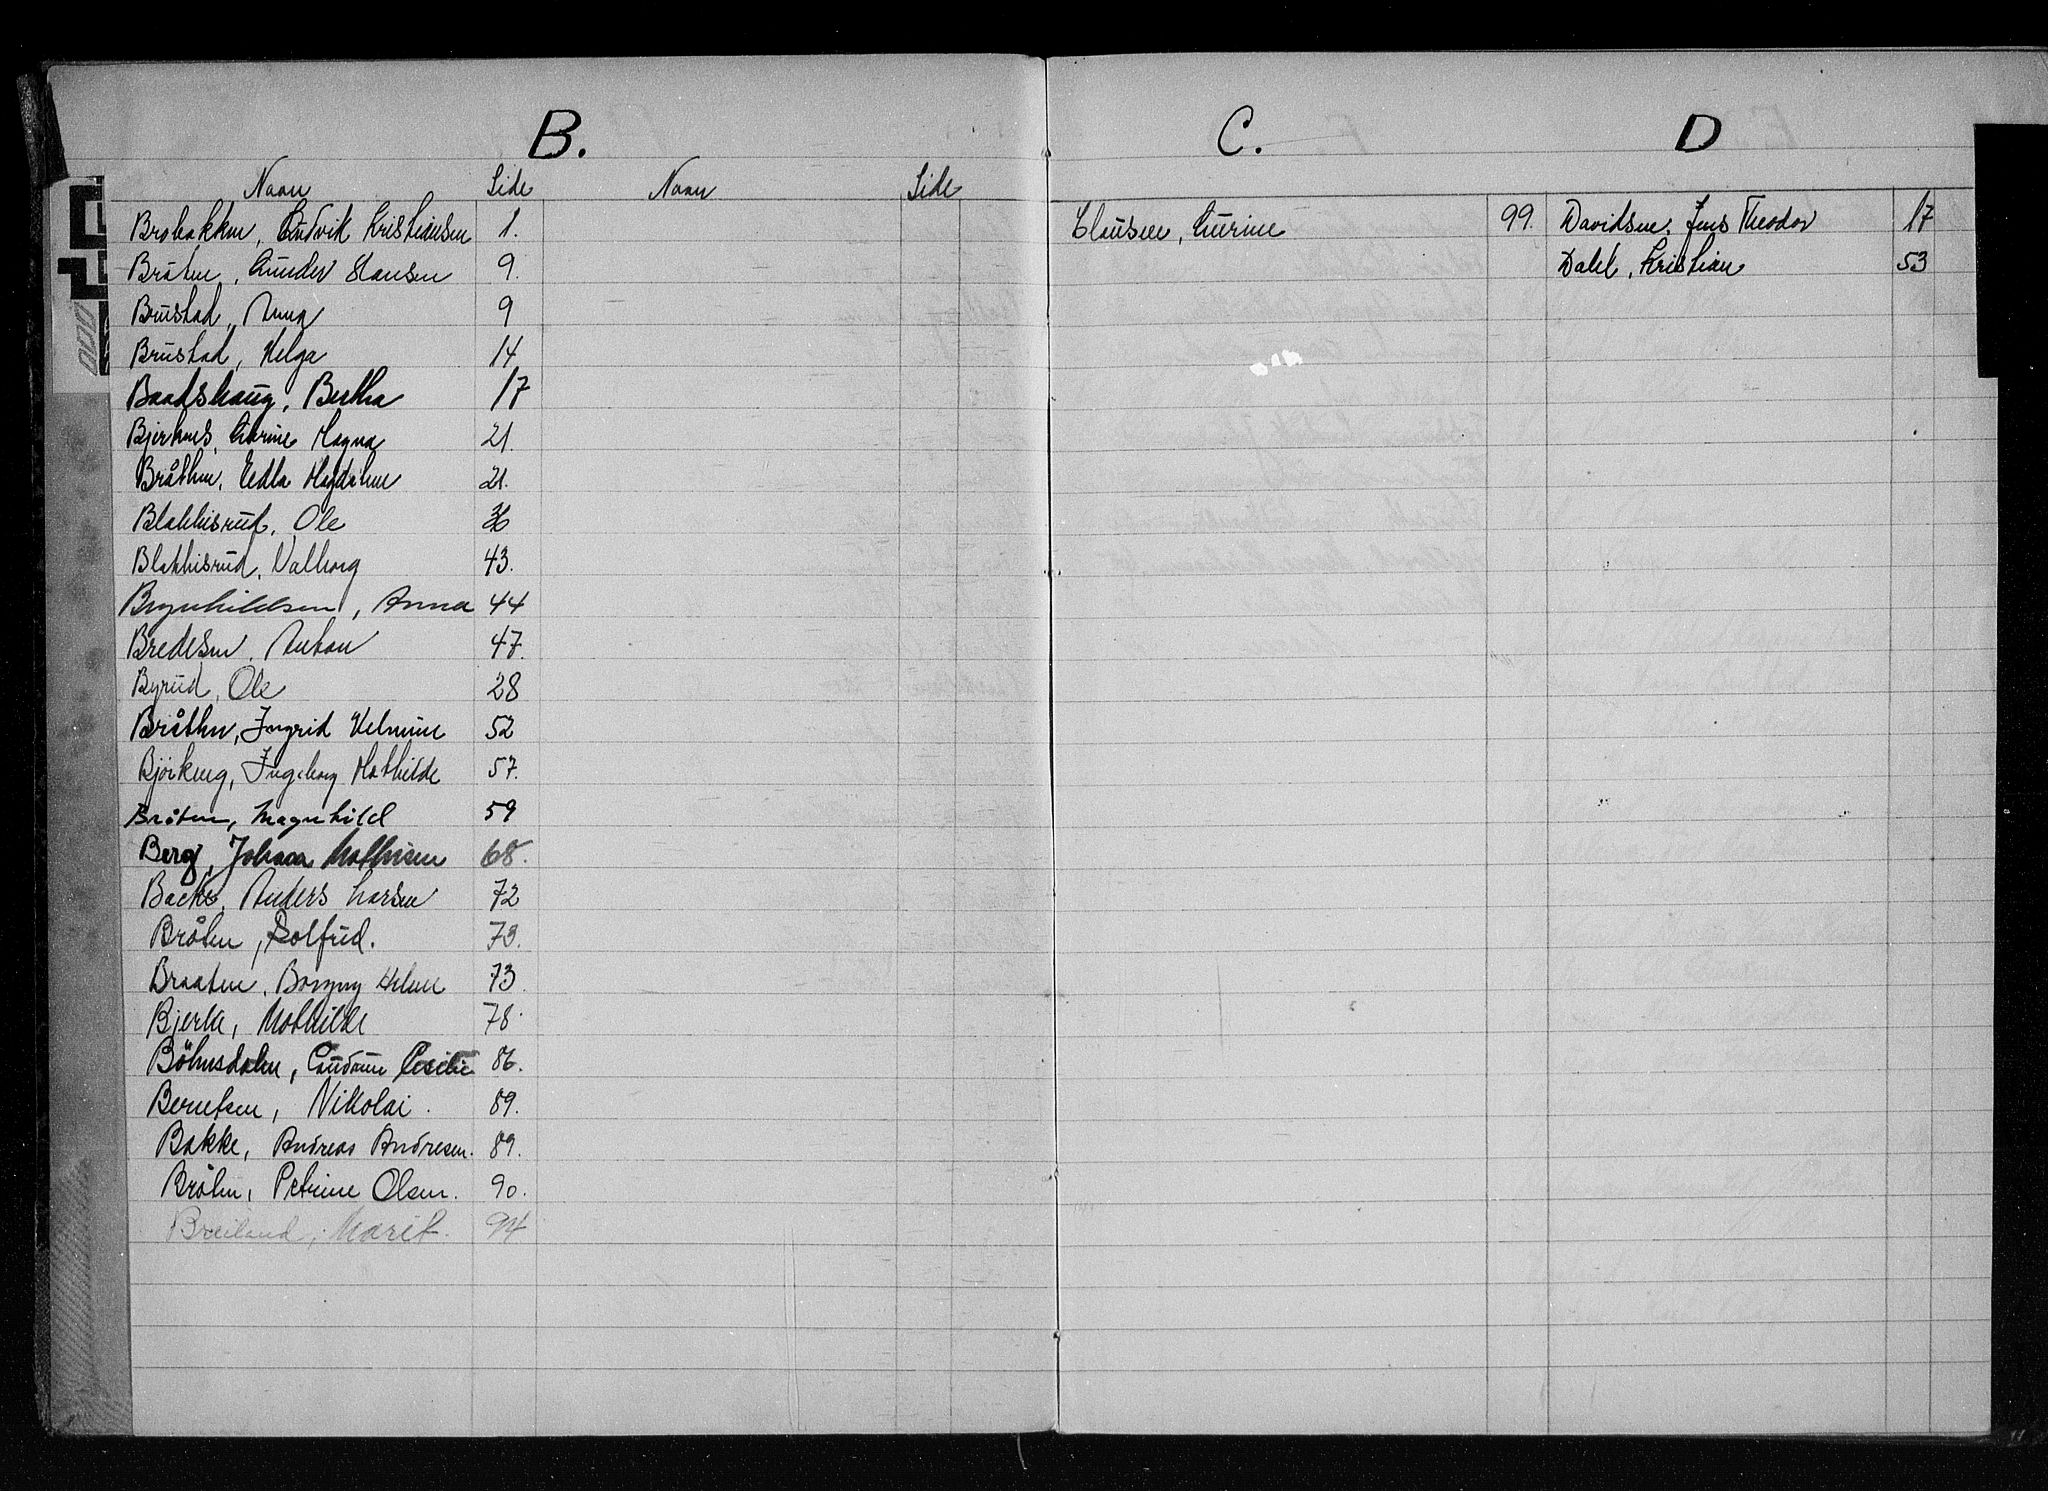 B.
Navn Side Navn Side
Brobakken, Ludvik Kristiansen 1.
Bråten, Gunder Hansen 9.
Brustad, Anna 9
Brustad, Helga 14
Baadshaug, Bertha 17
Bjerknes, Karine Magna 21.
Bråthen, Hedla Magdalene 21.
Blakkisrud, Ole 36
Blakkisrud, Valborg 43.
Brynhildsen, Anna 44
Bredesen, Anton 47.
Byrud, Ole 28
Bråthen, Ingrid Helmine 52
Björkeng, Ingeborg Mathilde 57.
Bråten, Magnhild 59
Berg, Johan Mathisen 68.
Backe, Anders Larsen 72
Bråten, Solfrid. 73.
Braaten, Borgny Helene 73.
Bjerke, Mathilde 78.
Böhnsdalen, Gudrun Cecilie 86.
Berntsen, Nikolai. 89.
Bakke, Andreas Andresen. 89.
Bråten, Petrine Olsen. 90.
Breiland, Marit. 94
C.
Clausen, Laurine 99.
D
Davidsen, Jens Theodor 17
Dahl, Kristian 53